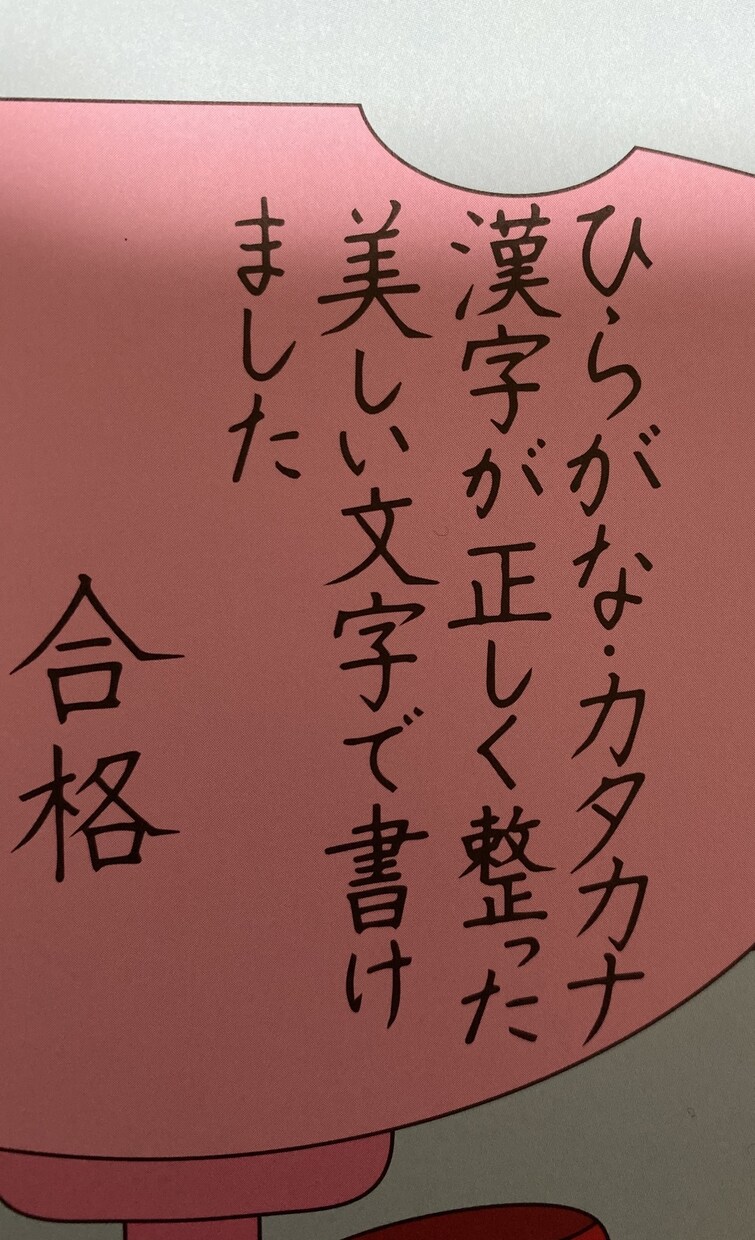 ひらがな・カタカナ
漢字が正しく整った
美しい文字で書け
ました
合格